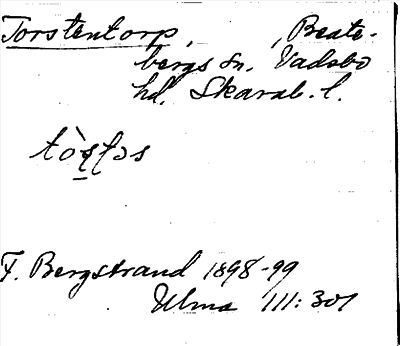 Torstentorp, , Beate-
bergs sn. Vadsbo
hd. Skarab. l.
F. Bergstrand 1898-99
Ulma 111: 301